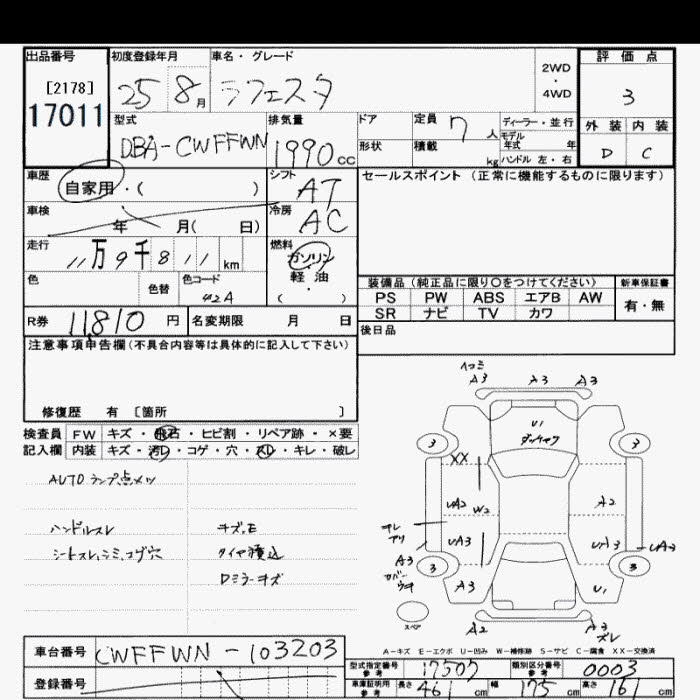 出品番号 初度登録年月 車名・グレード 評価点
[2178] 25 8月 ラフェスタ 2WD・4WD 3
17011
型式 排気量 ドア 定員 7人 ディーラー・並行 外装 内装
DBA-CWFFWN 1990cc 形状 積載 kg モデル年式 年 D C
ハンドル 左・右
車歴 自家用・( ) シフト AT セールスポイント(正常に機能するものに限ります)
車検 年 月( 日) 冷房 AC
走行 11万9千811km 燃料 ガソリン・軽油 ( )
色 色替 色コード 42A
装備品(純正品に限り○をつけてください) 新車保証書
PS PW ABS エアB AW 有・無
SR ナビ TV カワ
R券 11,810円 名変期限 月 日 後日品
注意事項申告欄(不具合内容等は具体的に記入して下さい)
修復歴 有 [箇所 ]
検査員 FW キズ・飛石・ヒビ割・リペア跡・×要
記入欄 内装 キズ・汚レ・コゲ・穴・スレ・キレ・破レ
AUTOランプ点メツ
ハンドルスレ
シートスレ,シミ,コゲ穴
キズ,E
タイヤ積込
ロミラーキズ
ヘコミ
A3 A3 A3
U1
3 3
XX
UA2 W2 A2
UA3 UA3 UA3
A3
カバーウキ
3 3
A3 U1
スペア
A2 A3
スレ
A-キズ E-エクボ U-凹み W-補修跡 S-サビ C-腐食 XX-交換済
車台番号 CWFFWN-103203
登録番号
型式指定番号 参考 17507 類別区分番号 参考 0003
車庫証明用 参考 長さ 461cm 幅 175cm 高さ 161cm